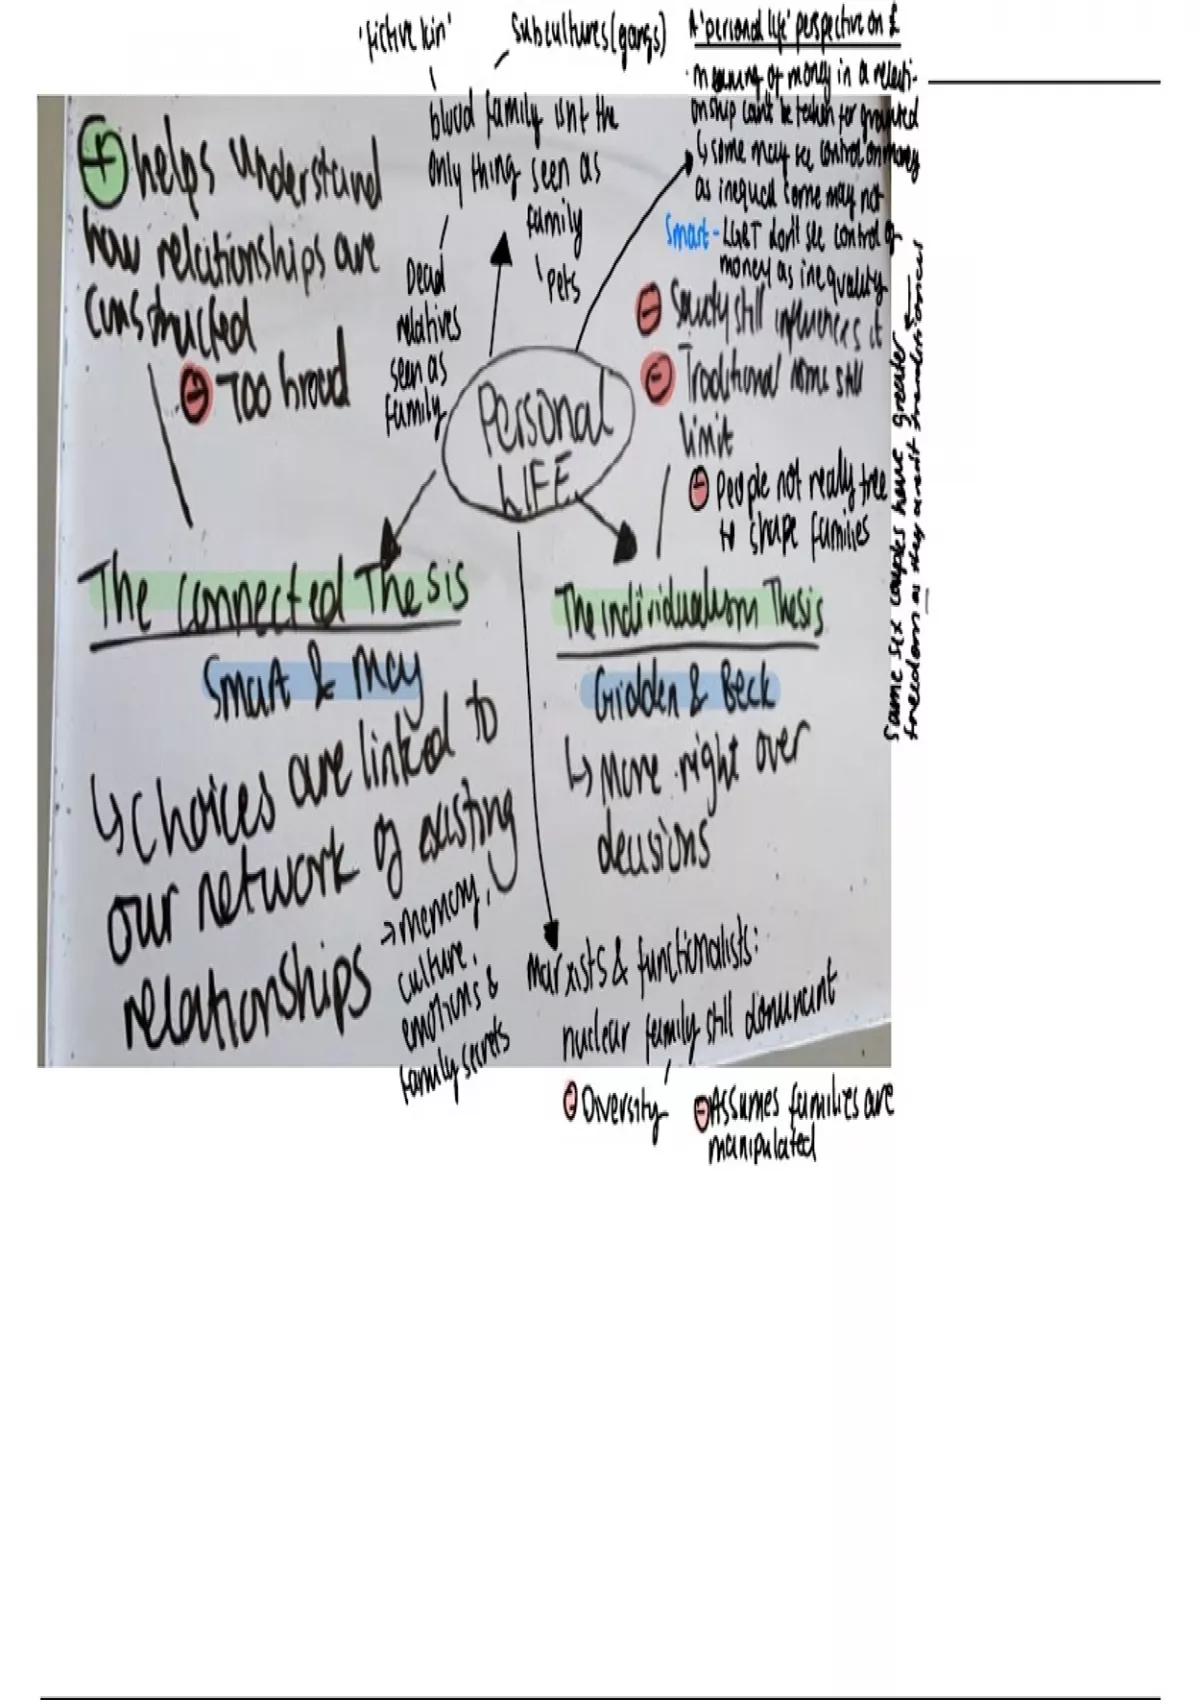 'fictive kin'
Subcultures (gangs)
blood family isn't the
only thing seen as
family
Pets
Dead
relatives
seen as
family
A 'personal life' perspective on £
· meaning of money in a relati-
onship can't be taken for granted
↳ some may see control on money
as inequal some may not
Smart - LGBT don't see control of
money as inequality
⊕ helps understand
how relationships are
constructed
⊖ Too broad
Personal
LIFE
⊖ Society still influences it
⊖ Traditional norms still
limit
⊖ People not really free
to shape families
Same sex couples have greater
freedom as they aren't
The connected Thesis
Smart & May
↳ Choices are linked to
our network of existing
relationships
→ memory,
culture,
emotions &
family secrets
The individualism Thesis
Gidden & Beck
↳ More right over
decisions
Marxists & functionalists:
nuclear family still dominant
⊖ Diversity
⊖ Assumes families are
manipulated